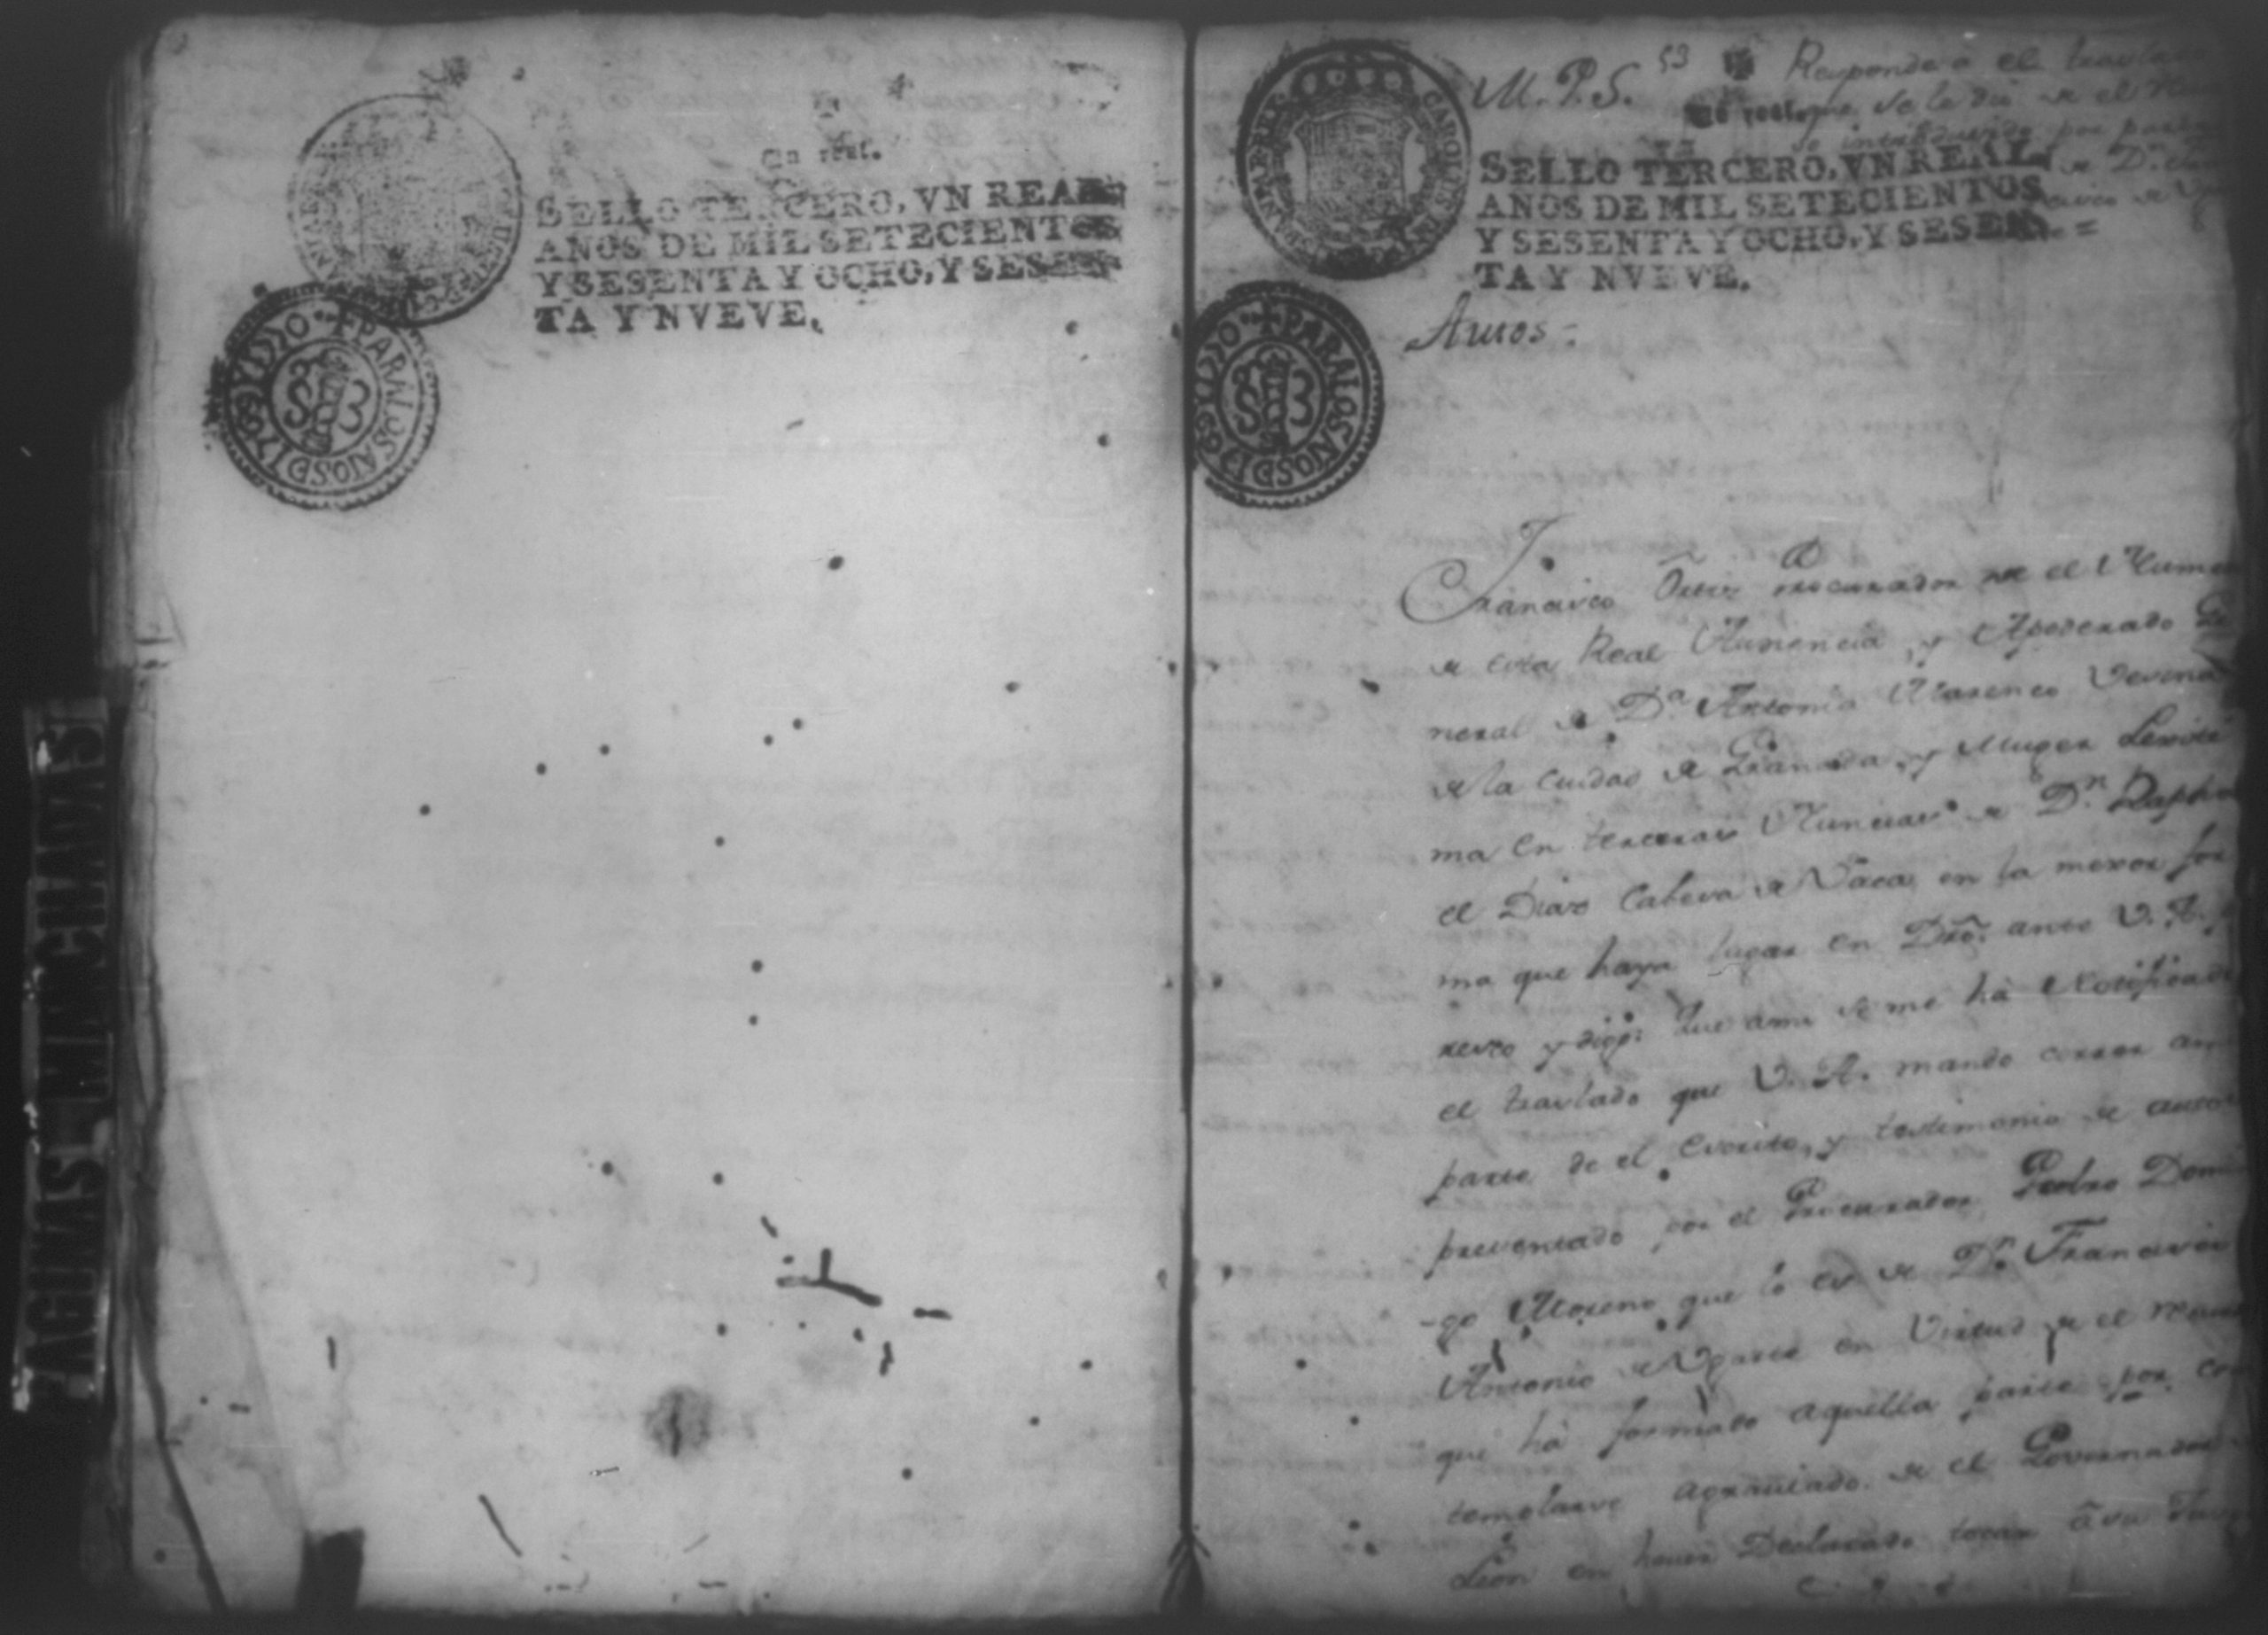 Un real.
SELLO TERCERO, VN REAL
AÑOS DE MIL SETECIENTOS
Y SESENTA Y OCHO, Y SESEN
TA Y NVEVE.
PARA LOS AÑOS DE 1769 Y 1770
S 3
PAGINAS MANCHADAS
M.P.S. 53
Responde a el traslado
que se le dio de el
por parte
de Dn
SELLO TERCERO, VN REAL,
AÑOS DE MIL SETECIENTOS
Y SESENTA Y OCHO, Y SESEN
TA Y NVEVE.
CAROLUS III
PARA LOS AÑOS D 1769 Y 1770
S 3
Autos:
Francisco Ortiz Procurador de el Nume
de esta Real Audiencia, y Apoderado Ge
neral de Da. Antonia Marenco Vecina
de la Ciudad de Granada, y Muger Lexiti
ma en terceras Nuncias de Dn. Rapha
el Diaz Cabeza de Vaca, en la mexor for
ma que haya lugar en Dro. ante V. A.
rezco y digo: Que ami se me há Notificado
el traslado que V. A. mandó correr
parte de el Escrito, y testimonio de autos
presentado por el Procurador Pedro Domin
go Moreno que lo es de Dn. Francisco
Antonio de Ugarte en Virtud de el
que há formado aquella parte por con
templarse agraviado de el Governador
Leon en haver Declarado tocar á su